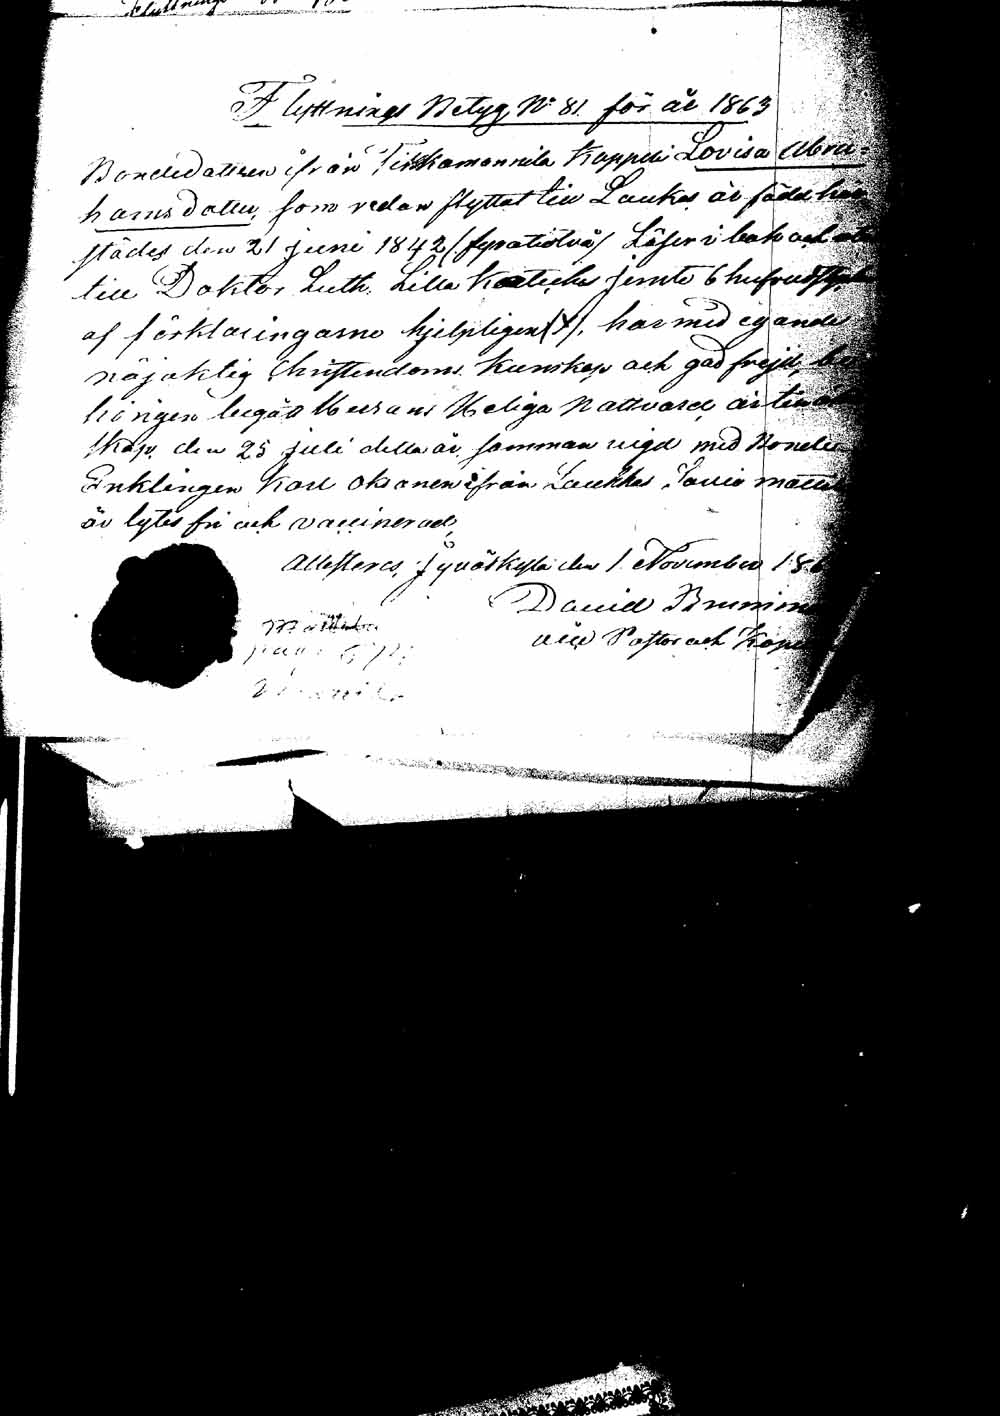 Flyttnings Betyg, No 81. för år 1863
Bondedottren ifrån Tikkamannila Kappell Lovisa Abra-
hams dotter, som redan flyttat till Laukas är född här
städes den 21 juni 1842 (fyratiotvå) Läser i bok och
till Doktor Luth. Lilla Kateches jemte
af förklaringarne hjelpligen (+), har med egande
nöjaktig Christendoms kunskap och god frejd,
hörigen begått Herrans Heliga Nattvard, är
skap, den 25 juli detta år, samman vigd med Bonde
Enklingen Karl Oksanen ifrån Laukkas
är lytes fri och vaccinerad,
Attesteras, Jyväskylä den 1 November 186
David
vice Pastor och Kap